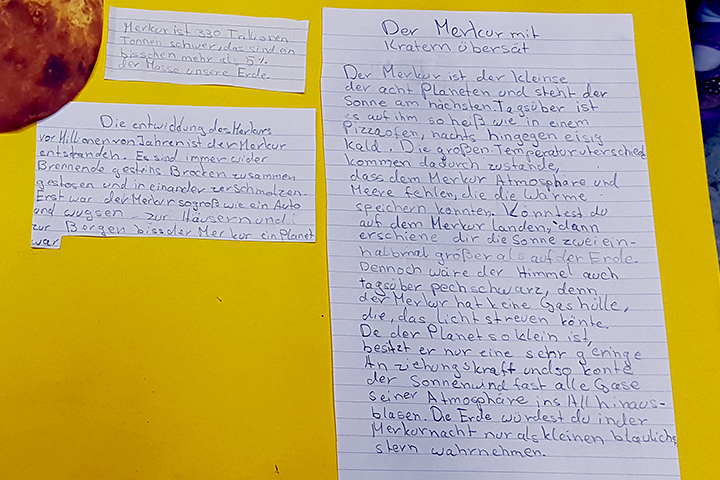 Merkur ist 330 Trillionen
Tonnen schwer, das sind ein
bisschen mehr als 5%
der Masse unsere Erde.
Die entwicklung des Merkurs
vor Millionen von Jahren ist der Merkur
entstanden. Es sind immer wider
Brennende gestins Brocken zusammen
gestosen und in einander verschmolzen.
Erst war der Merkur so groß wie ein Auto
und wugsen zur Häusern und
zur Bergen biss der Merkur ein Planet
war
Der Merkur mit
Kratern übersät
Der Merkur ist der kleinse
der acht Planeten und steht der
Sonne am nächsten. Tagsüber ist
es auf ihm so heiß wie in einem
Pizzaofen, nachts hingegen eisig
kald. Die großen Temperaturuterschied
kommen dadurch zustande,
dass dem Merkur Atmosphäre und
Meere fehlen, die die Wärme
speichern könnten. Könntest du
auf dem Merkur landen, dann
erschiene dir die Sonne zweiein-
halbmal größer als auf der Erde.
Dennoch wäre der Himmel auch
tagsüber pechschwarz, denn
der Merkur hat keine Gashülle,
die, das licht streuen könte.
De der Planet so klein ist,
besitzt er nur eine sehr geringe
Anziehungskraft und so konte
der Sonnenwind fast alle Gase
seiner Atmosphäre ins All hinaus-
blasen. Die Erde würdest du in der
Merkurnacht nur als kleinen bläulich
stern wahrnehmen.